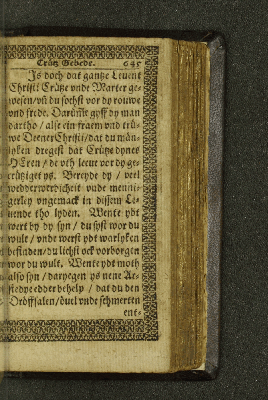 Crütz Gebede. 645
Js doch dat gantze Leuent
Christi Crütze vnde Marter ge-
wesen/vñ du sochst vor dy rouwe
vnd frede. Darüm̃e gyff dy man
dartho / alse ein fraem vnd trü-
we Dener Christi/dat du män-
lyken dregest dat Crütze dynes
HEren / de vth leeue vor dy ge-
crütziget ys. Bereyde dy / veel
wedderwerdicheit vnde menni-
gerley vngemack in dissem Le-
uende tho lyden. Wente ydt
wert by dy syn / du syst wor du
wult / vnde werst ydt warlyken
befinden/du lichst ock vorborgen
wor du wult. Wente ydt moth
also syn / daryegen ys nene Ar-
stedye edder behelp / dat du den
Dröffsalen/düel vnde schmerten
ent-